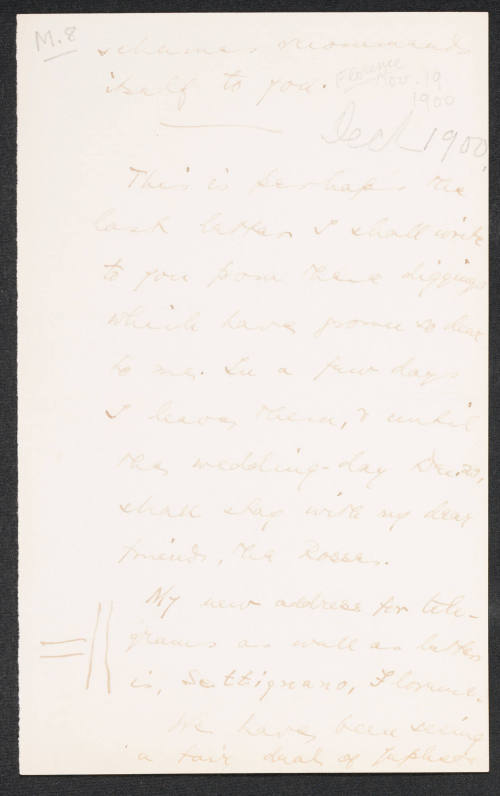 M.8
schemes recommends
itself to you.
Florence
Nov. 19
1900
Dec 1900
This is perhaps the
last letter I shall write
to you from these diggings
which have grown so dear
to me. In a few days
I leave them, & until
the wedding-day Dec. 29,
shall stay with my dear
friends, the Rosses.
My new address for tele-
grams as well as letters
is, Settignano, Florence.
We have been seeing
a fair deal of